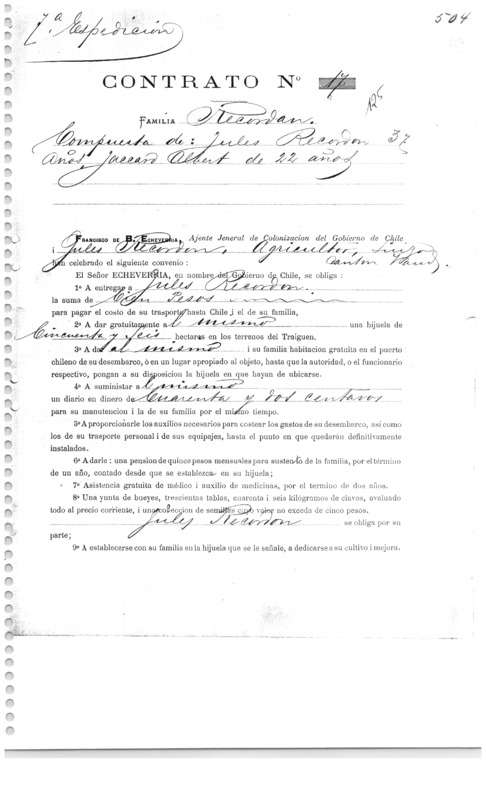 7.ª Expedición
504
CONTRATO Nº 17
125
FAMILIA Recordan.
Compuesta de: Jules Recordon 37
Años, Jaccard Albert de 22 años
FRANCISCO DE B. ECHEVERRIA, Ajente Jeneral de Colonizacion del Gobierno de Chile
i Jules Recordon, Agricultor, Suizo
Canton Vaud.
han celebrado el siguiente convenio:
El Señor ECHEVERRIA, en nombre del Gobierno de Chile, se obliga:
1º A entregar a Jules Recordon.
la suma de Cien Pesos
para pagar el costo de su trasporte hasta Chile i el de su familia,
2º A dar gratuitamente a el mismo una hijuela de
Cincuenta y seis hectareas en los terrenos del Traiguen.
3º A dar al mismo i su familia habitacion gratuita en el puerto
chileno de su desembarco, ó en un lugar apropiado al objeto, hasta que la autoridad, o el funcionario
respectivo, pongan a su disposicion la hijuela en que hayan de ubicarse.
4º A suministar a el mismo
un diario en dinero de Cuarenta y dos centavos
para su manutencion i la de su familia por el mismo tiempo.
5º A proporcionárle los auxilios necesarios para costear los gastos de su desembarco, así como
los de su trasporte personal i de sus equipajes, hasta el punto en que quedarán definitivamente
instalados.
6º A darle: una pension de quince pesos mensuales para sustento de la familia, por el término
de un año, contado desde que se establezca en su hijuela;
7º Asistencia gratuita de médico i auxilio de medicinas, por el termino de dos años.
8º Una yunta de bueyes, trescientas tablas, cuarenta i seis kilógramos de clavos, avaluado
todo al precio corriente, i una coleccion de semillas cuyo valor no exceda de cinco pesos.
Jules Recordon se obliga por su
parte;
9º A establecerse con su familia en la hijuela que se le señale, a dedicarse a su cultivo i mejora.